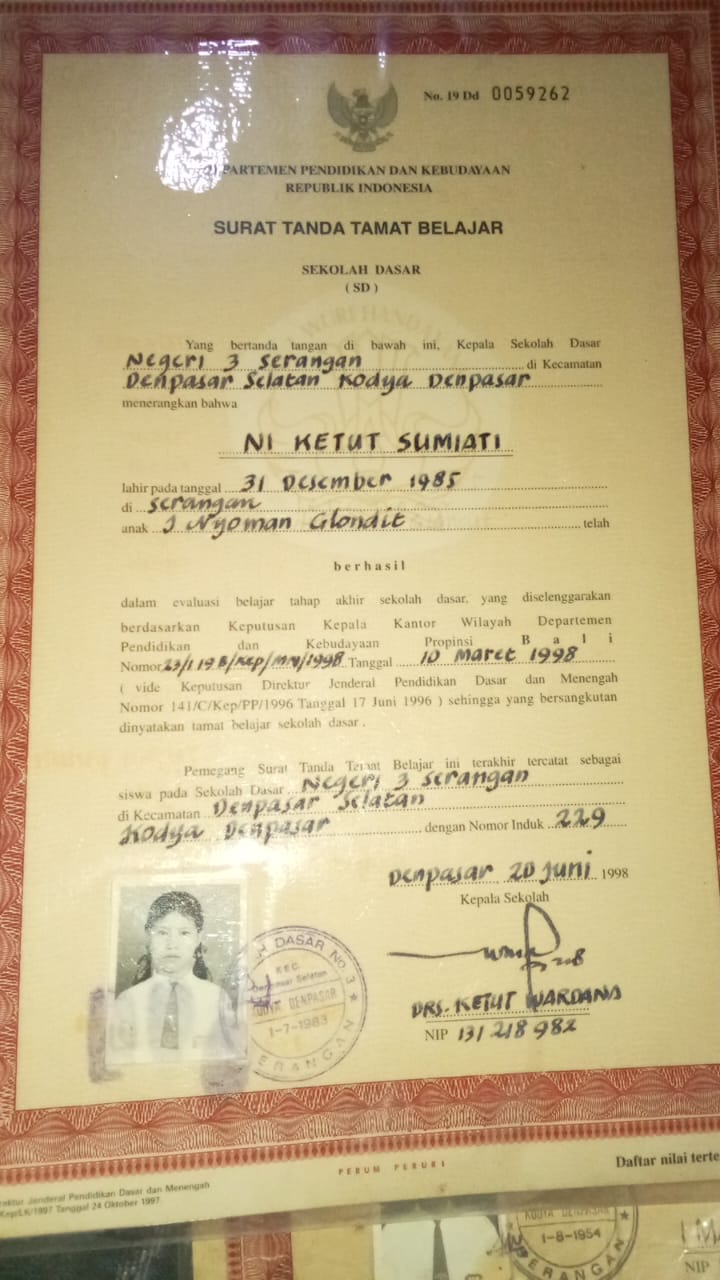 No. 19 Dd 0059262
DEPARTEMEN PENDIDIKAN DAN KEBUDAYAAN
REPUBLIK INDONESIA
SURAT TANDA TAMAT BELAJAR
SEKOLAH DASAR
( SD )
Yang bertanda tangan di bawah ini, Kepala Sekolah Dasar
Negeri 3 Serangan di Kecamatan
Denpasar Selatan Kodya Denpasar
menerangkan bahwa
NI KETUT SUMIATI
lahir pada tanggal 31 Desember 1985
di Serangan
anak I Nyoman Glondit telah
berhasil
dalam evaluasi belajar tahap akhir sekolah dasar, yang diselenggarakan
berdasarkan Keputusan Kepala Kantor Wilayah Departemen
Pendidikan dan Kebudayaan Propinsi B a l i
Nomor Tanggal 10 Maret 1998
( vide Keputusan Direktur Jenderal Pendidikan Dasar dan Menengah
Nomor 141/C/Kep/PP/1996 Tanggal 17 Juni 1996 ) sehingga yang bersangkutan
dinyatakan tamat belajar sekolah dasar .
Pemegang Surat Tanda Tamat Belajar ini terakhir tercatat sebagai
siswa pada Sekolah Dasar Negeri 3 Serangan
di Kecamatan Denpasar Selatan
Kodya Denpasar dengan Nomor Induk 229
Denpasar 20 Juni 1998
Kepala Sekolah
DRS. KETUT WARDANA
NIP 131 218 982
DASAR No. 3
KEC.
Denpasar Selatan
KODYA DENPASAR
1-7-1983
SERANGAN
PERUM PERURI
Daftar nilai terte
Jenderal Pendidikan Dasar dan Menengah
Kep/LK/1997 Tanggal 24 Oktober 1997
KODYA DENPASAR
1-8-1954
SERANGAN
NIP